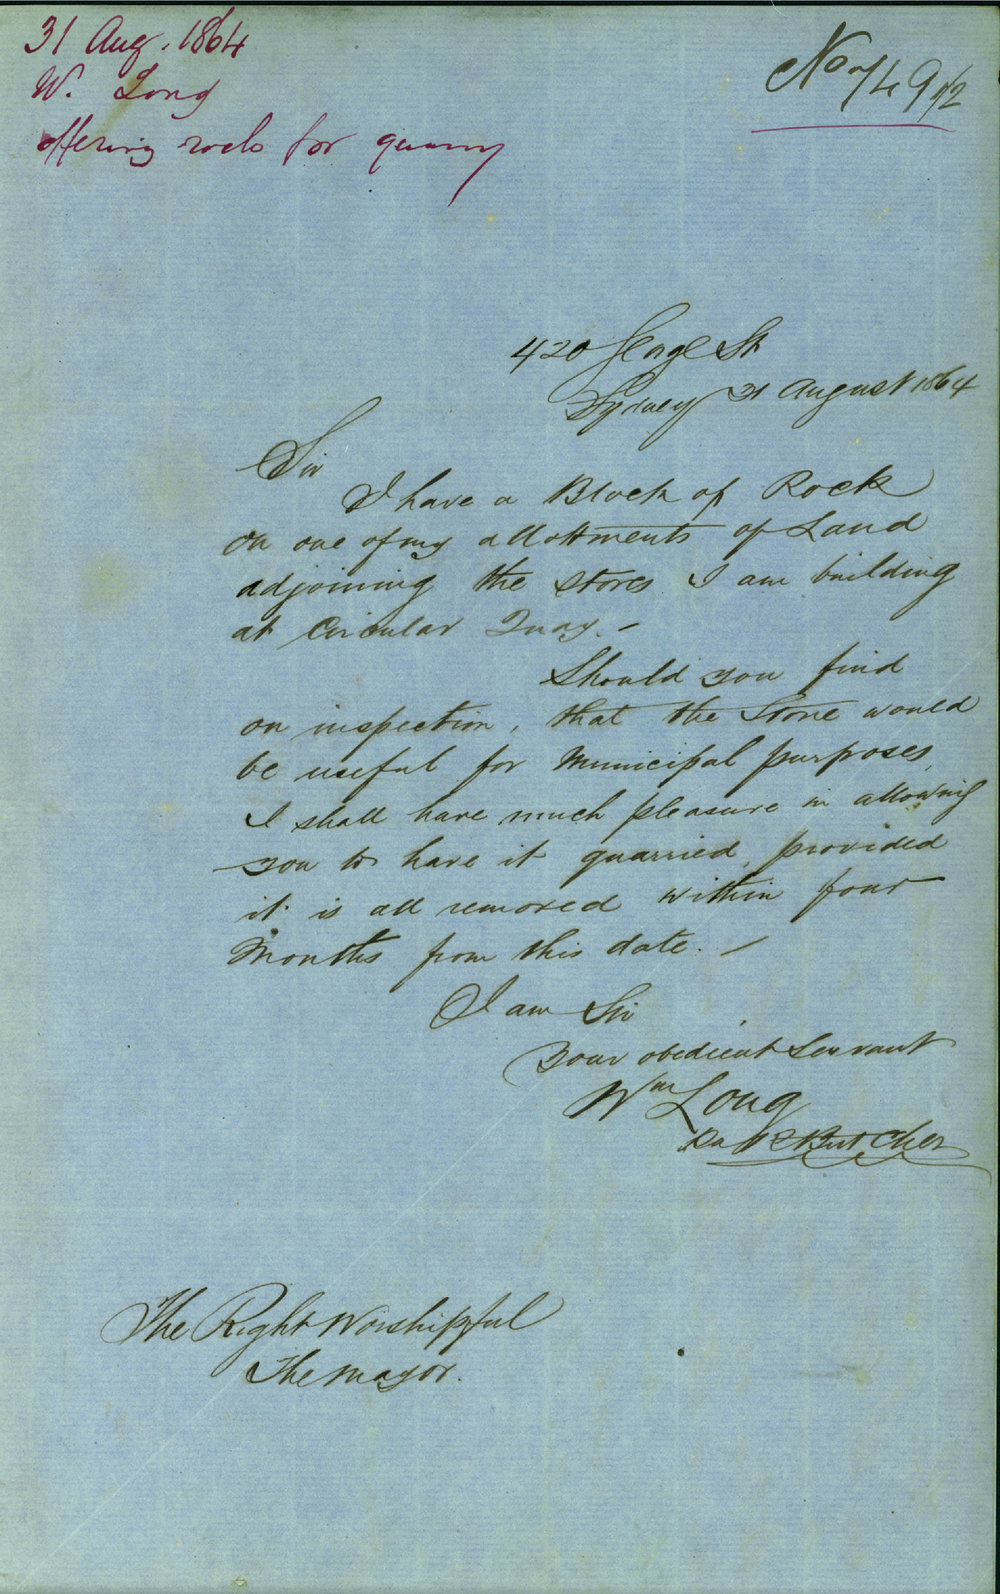 31 Aug. 1864
W. Long
offering rock for quarry
No
420 George St
Sydney 31 August 1864
Sir
I have a Block of Rock
on one of my allottments of Land
adjoining the Stores I am building
at Circular Quay. –
Should you find
on inspection, that the Stone would
be useful for Municipal purposes,
I shall have much pleasure in allowing
you to have it quarried, provided
it is all removed within four
Months from this date. –
I am Sir
Your obedient Servant
Wm Long
Butcher
The Right Worshipful
The Mayor.